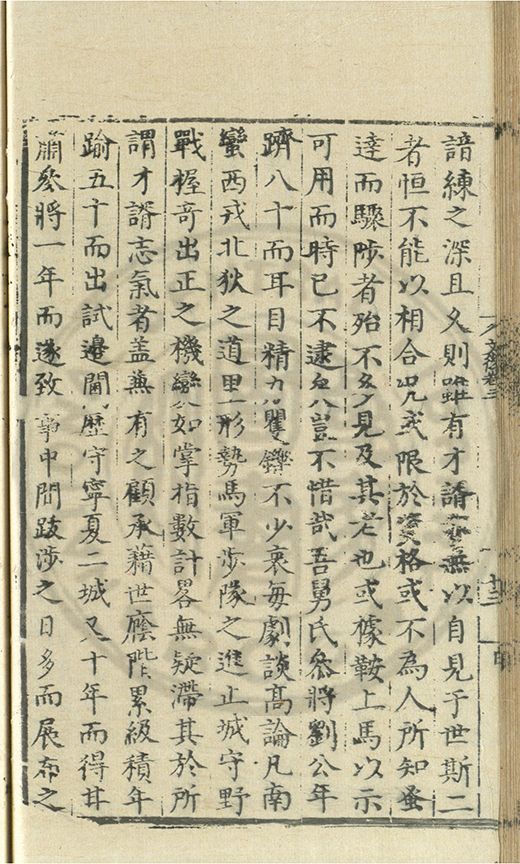 諳練之深且久則雖有才諝亦無以自見于世斯二
者恒不能以相合況或限於資格或不為人所知蚤
達而驟陟者殆不多見及其老也或據鞍上馬以示
可用而時已不逮矣豈不惜哉吾舅氏叅將劉公年
躋八十而耳目精力矍鑠不少衰每劇談髙論凡南
蠻西戎北狄之道里形勢馬軍步隊之進止城守野
戰握竒出正之機變如掌指數計畧無疑滯其於所
謂才諝志氣者盖兼有之顧承藉世廕階累級積年
踰五十而出試邊閫歷守寧夏二城又十年而得甘
肅叅將一年而遂致事中間跋涉之日多而展布之
十三